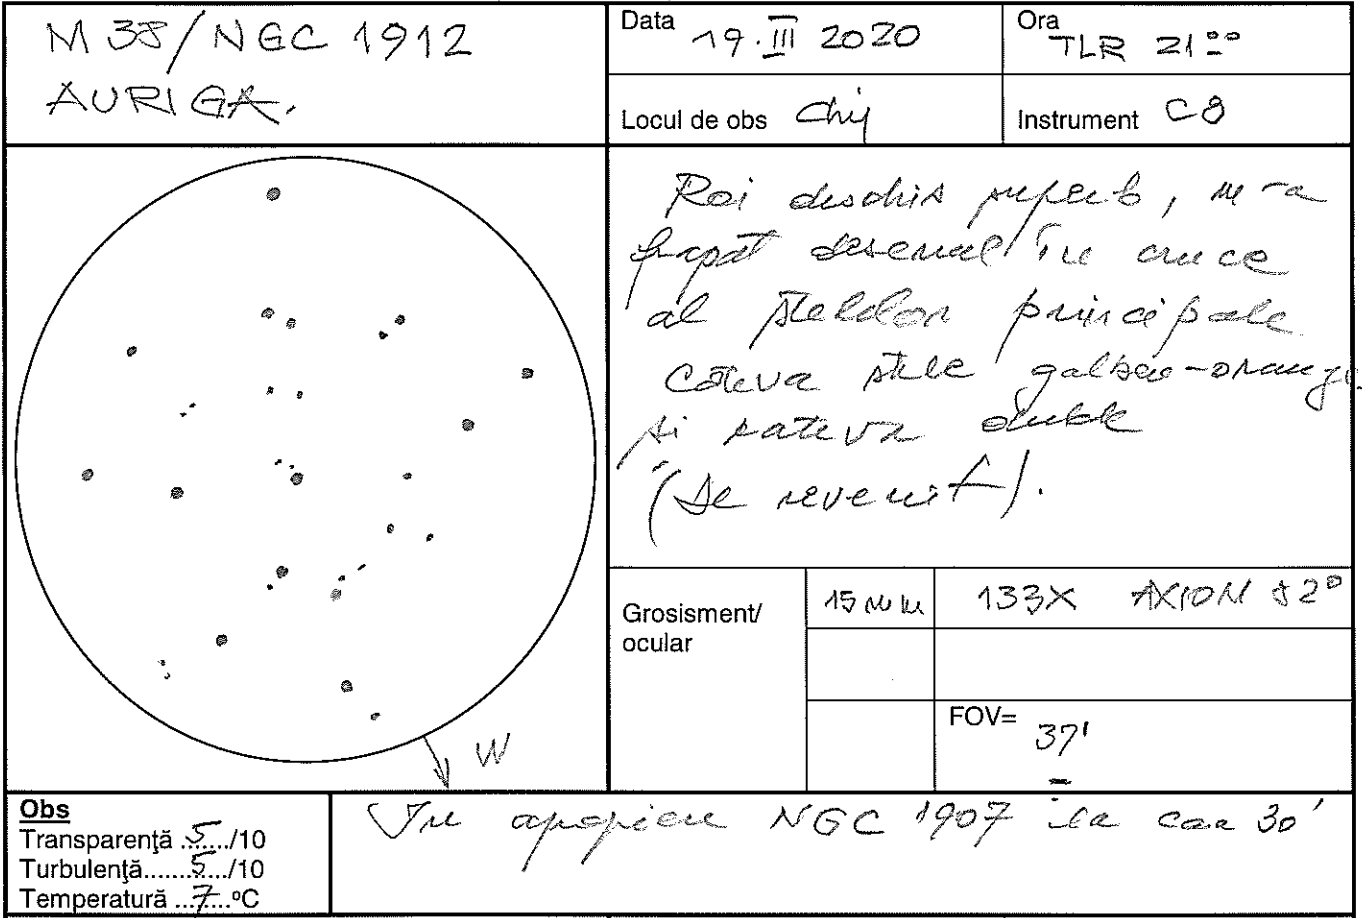 M 38/NGC 1912
AURIGA.
Data 19.III 2020
Ora TLR 21°°
Locul de obs Chij
Instrument C8
Roi deschis superb, m-a
frapat desenul în cruce
al stelelor principale
câteva stele galben-orange
și câteva duble
(de revenit).
Grosisment/
ocular
15 mm
133X AXION 82°
FOV= 37'
W
Obs
Transparenţă ..5..../10
Turbulenţă.......5.../10
Temperatură ...7...ºC
În apropiere NGC 1907 la cca 30'